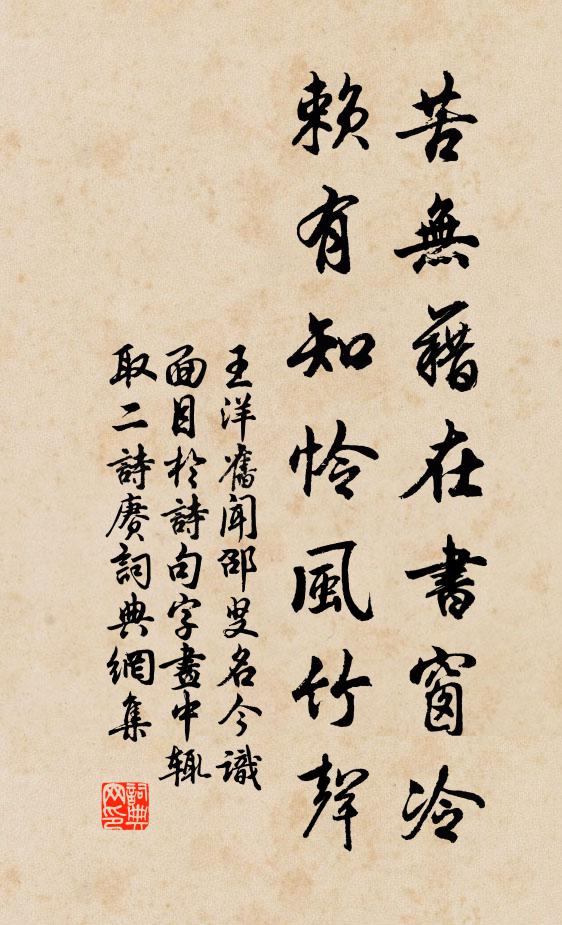 苦無藉在書窗冷
賴有知怜風竹聲
王洋舊聞邵叟名今識
面目於詩句字畫中輒
取二詩賡詞典網集
詞典網印